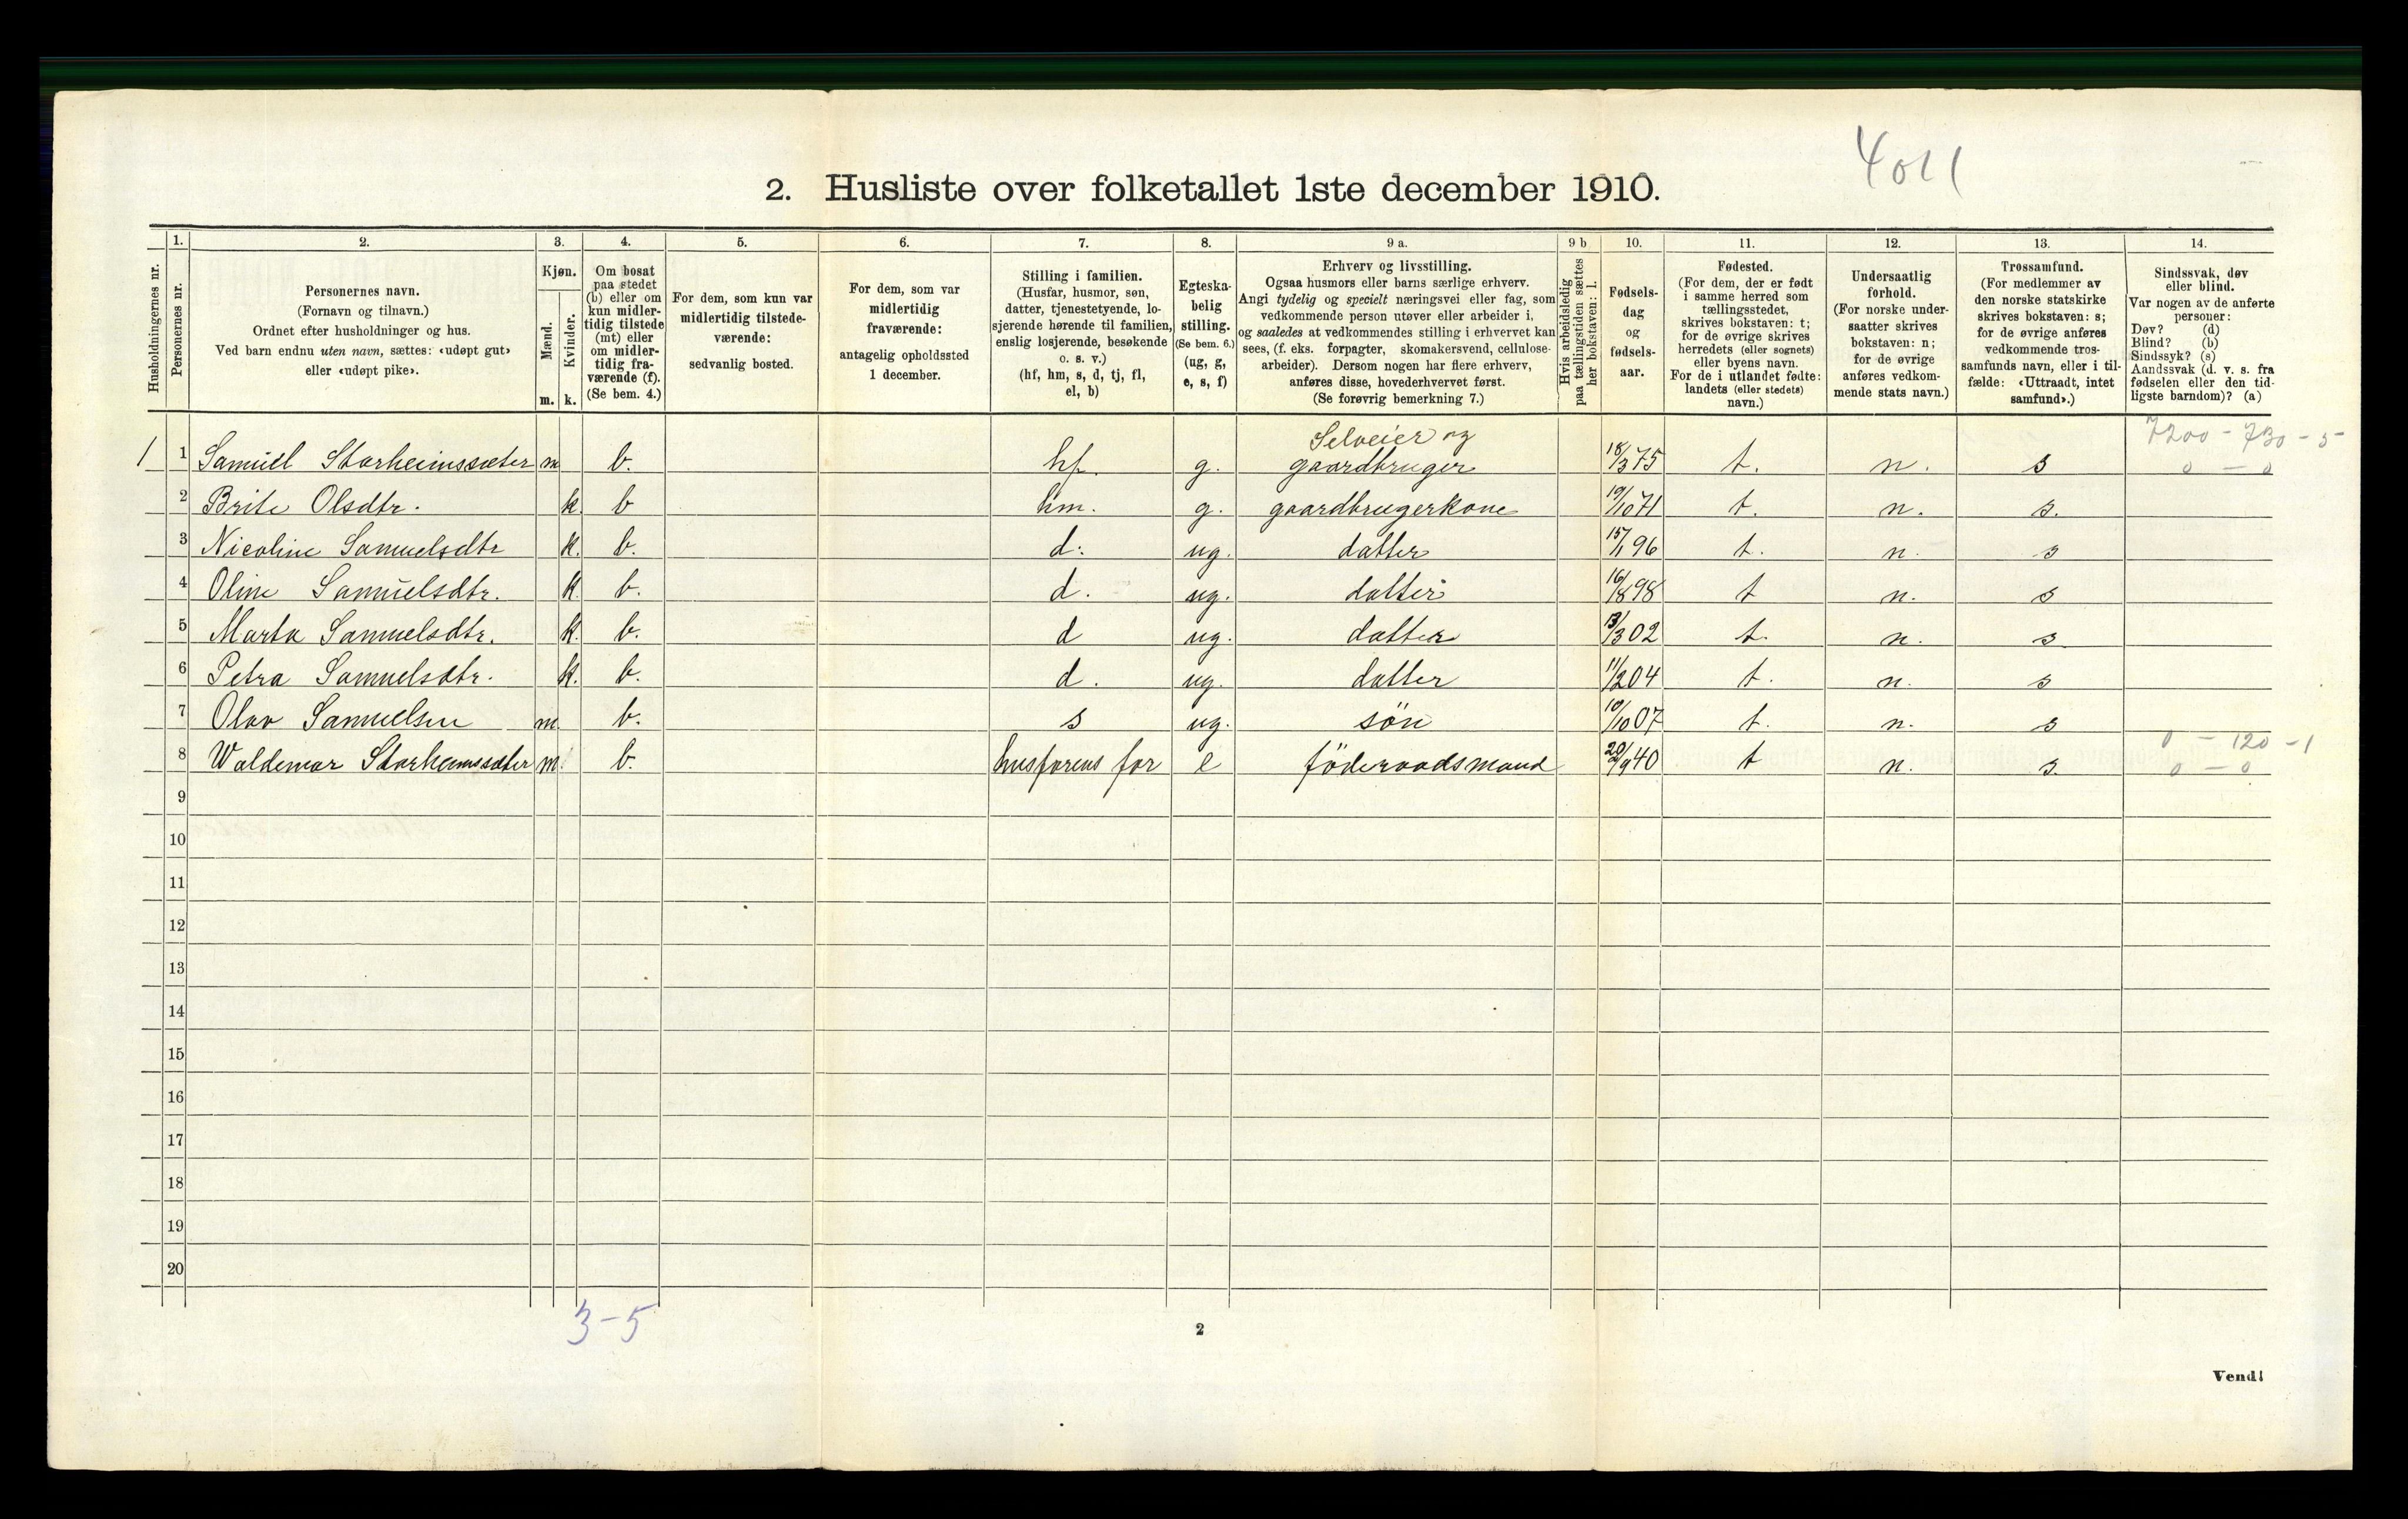 4011
2. Husliste over folketallet 1ste december 1910.
Husholdningernes nr.
1.
Personernes nr.
2.
Personernes navn.
(Fornavn og tilnavn.)
Ordnet efter husholdninger og hus.
Ved barn endnu uten navn, sættes: «udøpt gut»
eller «udøpt pike».
3.
Kjøn.
Mænd.
Kvinder.
m. k.
4.
Om bosat
paa stedet
(b) eller om
kun midler-
tidig tilstede
(mt) eller
om midler-
tidig fra-
værende (f).
(Se bem. 4.)
5.
For dem, som kun var
midlertidig tilstede-
værende:
sedvanlig bosted.
6.
For dem, som var
midlertidig
fraværende:
antagelig opholdssted
1 december.
7.
Stilling i familien.
(Husfar, husmor, søn,
datter, tjenestetyende, lo-
sjerende hørende til familien,
enslig losjerende, besøkende
o. s. v.)
(hf, hm, s, d, tj, fl,
el, b)
8.
Egteska-
belig
stilling.
(Se bem. 6.)
(ug, g,
e, s, f)
9 a.
Erhverv og livsstilling.
Ogsaa husmors eller barns særlige erhverv.
Angi tydelig og specielt næringsvei eller fag, som
vedkommende person utøver eller arbeider i,
og saaledes at vedkommendes stilling i erhvervet kan
sees, (f. eks. forpagter, skomakersvend, cellulose-
arbeider). Dersom nogen har flere erhverv,
anføres disse, hovederhvervet først.
(Se forøvrig bemerkning 7.)
9 b
Hvis arbeidsledig
paa tællingstiden sættes
her bokstaven: l.
10.
Fødsels-
dag
og
fødsels-
aar.
11.
Fødested.
(For dem, der er født
i samme herred som
tællingsstedet,
skrives bokstaven: t;
for de øvrige skrives
herredets (eller sognets)
eller byens navn.
For de i utlandet fødte:
landets (eller stedets)
navn.)
12.
Undersaatlig
forhold.
(For norske under-
saatter skrives
bokstaven: n;
for de øvrige
anføres vedkom-
mende stats navn.)
13.
Trossamfund.
(For medlemmer av
den norske statskirke
skrives bokstaven: s;
for de øvrige anføres
vedkommende tros-
samfunds navn, eller i til-
fælde: «Uttraadt, intet
samfund».)
14.
Sindssvak, døv
eller blind.
Var nogen av de anførte
personer:
Døv? (d)
Blind? (b)
Sindssyk? (s)
Aandssvak (d. v. s. fra
fødselen eller den tid-
ligste barndom)? (a)
Selveier og 7200 - 730 - 5
1 1 Samuel Storheimssæter m b. hf. g. gaardbruger 18/3 75 t. n. s 0 - 0
2 Brite Olsdtr. k. b hm. g. gaardbrugerkone 19/10 71 t. n. s.
3 Nicoline Samuelsdtr k. b. d. ug. datter 15/1 96 t. n. s
4 Oline Samuelsdtr. k. b. d. ug. datter 16/8 98 t n. s
5 Marta Samuelsdtr. k. b. d ug. datter 13/3 02 t. n. s
6 Petra Samuelsdtr. k. b. d. ug. datter 11/2 04 t. n. s
7 Olav Samuelsen m. b. s ug. søn 10/10 07 t. n. s
0 - 120 - 1
8 Waldemar Storheimssæter m. b. husfarens far e föderaadsmand 20/9 40 t n. s. 0 - 0
9
10
11
12
13
14
15
16
17
18
19
20
3-5
2
Vend!